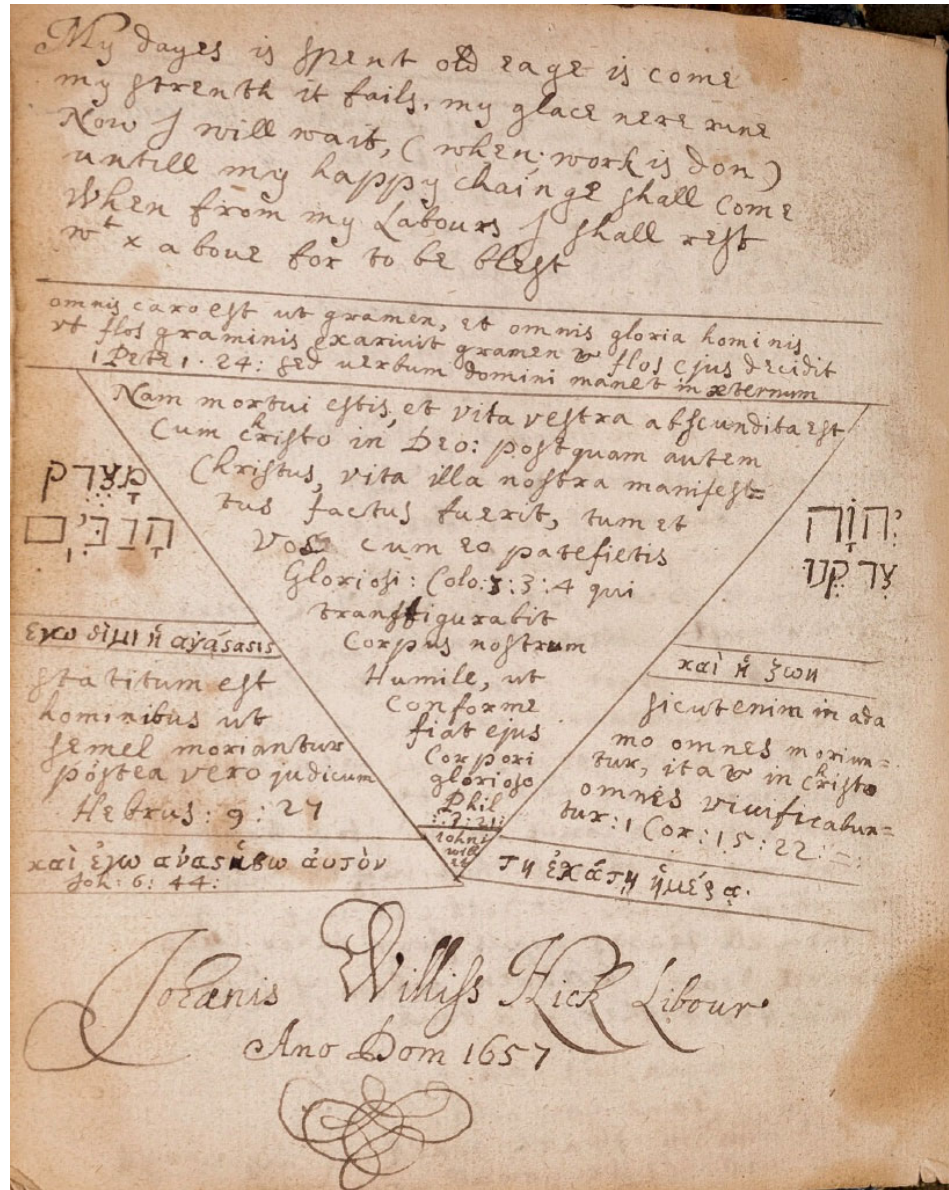 My dayes is spent old eage is come
my strenth it fails, my glace nere rune
Now I will wait, (when: work is don)
untill my happy chainge shall come
When from my Labours I shall rest
wt x aboue for to be blest
omnis caro est ut gramen, et omnis gloria hominis
vt flos graminis exarivit gramen & flos ejus decidit
1 Pete 1. 24: sed uerbum domini manet in æternum
Nam mortui estis, et vita vestra abscundita est
Cum christo in Deo: postquam autem
Christus, vita illa nostra manifest=
tus factus fuerit, tum et
Vos cum eo patefietis
Gloriosi: Colo: 3: 3: 4 qui
transfigurabit
Corpus nostrum
Humile, ut
Conforme
fiat ejus
Corpori
glorioso
Phil
: 3: 21:
Iohn
will
מָצֶּרֶק
הָרַבִּים
εγω ειμι ἡ ανάςασις
statitum est
hominibus ut
semel moriantur
póstea vero judicum
Hebrus: 9: 27
καὶ ἐγω αναςήσω ἀυτὸν
Joh: 6: 44:
יְהוָֹה
צִרְקֵנוּ
καὶ ἡ ζωη
sicut enim in ada
mo omnes moriun=
tur, ita & in christo
omnes viuificabun=
tur: 1 Cor: 15: 22: =
τη ἐχάτη ἡμέρα.
Johanis Williss Hick Libour
Ano Dom 1657